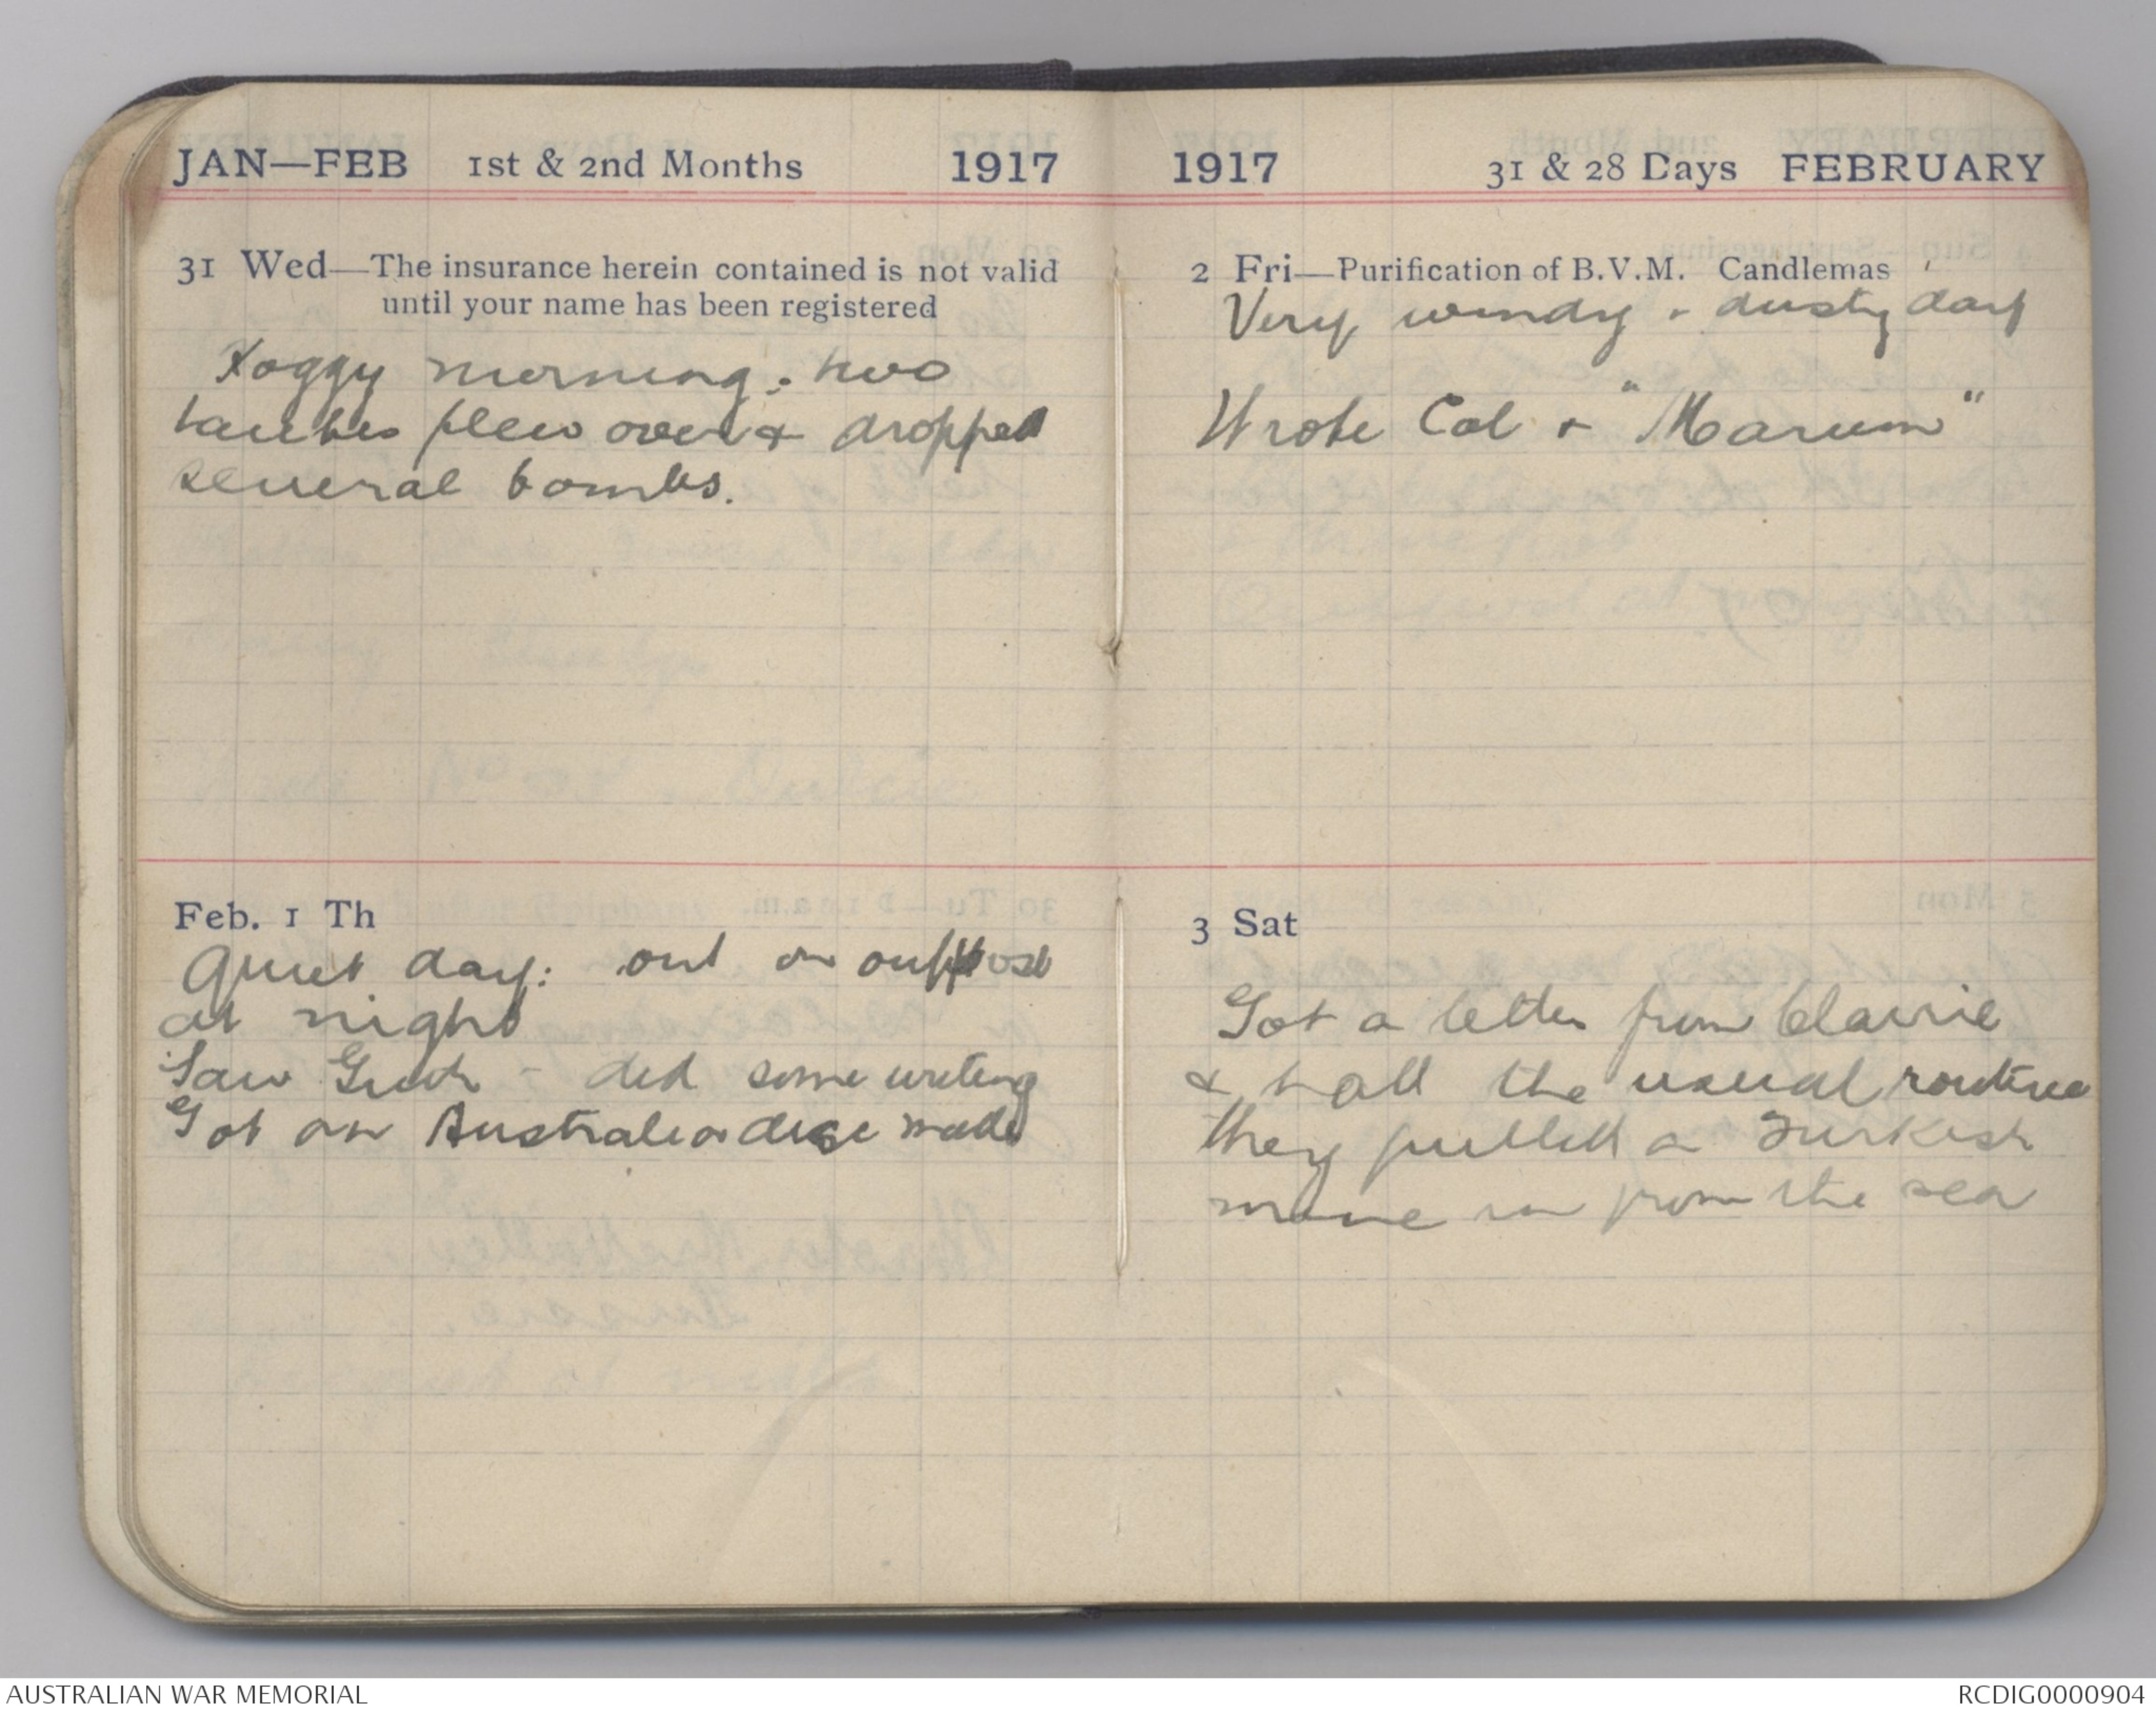 JAN—FEB 1st & 2nd Months 1917
31 Wed—The insurance herein contained is not valid
until your name has been registered
Foggy morning; two
taubes flew over & dropped
several bombs.
Feb. 1 Th
Quiet day: out on outpost
at night
Saw Guth - did some writing
Got an Australia disc made
1917 31 & 28 Days FEBRUARY
2 Fri—Purification of B.V.M. Candlemas
Very windy & dusty day
Wrote Cal & "Marum"
3 Sat
Got a letter from Clarrie
& all the usual routine
They pulled a Turkish
mine in from the sea
AUSTRALIAN WAR MEMORIAL
RCDIG0000904